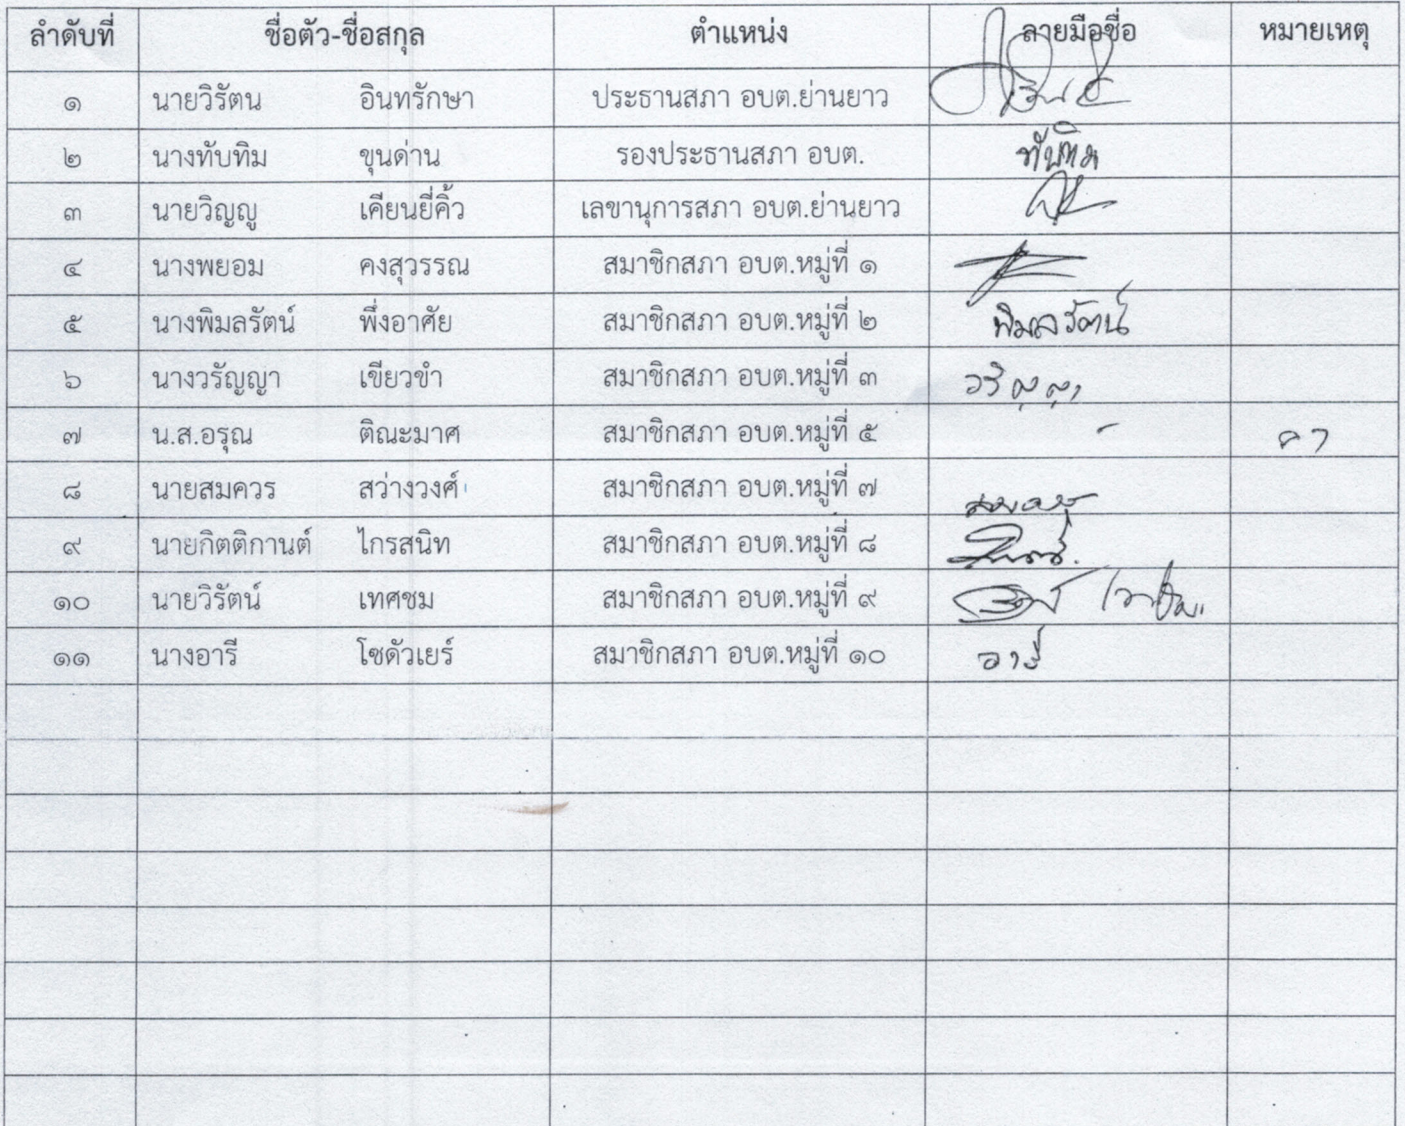 ลำดับที่ ชื่อตัว-ชื่อสกุล ตำแหน่ง ลายมือชื่อ หมายเหตุ
๑ นายวิรัตน อินทรักษา ประธานสภา อบต.ย่านยาว
๒ นางทับทิม ขุนด่าน รองประธานสภา อบต. ทับทิม
๓ นายวิญญู เคียนยี่คิ้ว เลขานุการสภา อบต.ย่านยาว
๔ นางพยอม คงสุวรรณ สมาชิกสภา อบต.หมู่ที่ ๑
๕ นางพิมลรัตน์ พึ่งอาศัย สมาชิกสภา อบต.หมู่ที่ ๒ พิมลรัตน์
๖ นางวรัญญา เขียวขำ สมาชิกสภา อบต.หมู่ที่ ๓ วรัญญา
๗ น.ส.อรุณ ติณะมาศ สมาชิกสภา อบต.หมู่ที่ ๕ - ลา
๘ นายสมควร สว่างวงศ์ สมาชิกสภา อบต.หมู่ที่ ๗ สมควร
๙ นายกิตติกานต์ ไกรสนิท สมาชิกสภา อบต.หมู่ที่ ๘
๑๐ นายวิรัตน์ เทศชม สมาชิกสภา อบต.หมู่ที่ ๙
๑๑ นางอารี โซดัวเยร์ สมาชิกสภา อบต.หมู่ที่ ๑๐ อารี